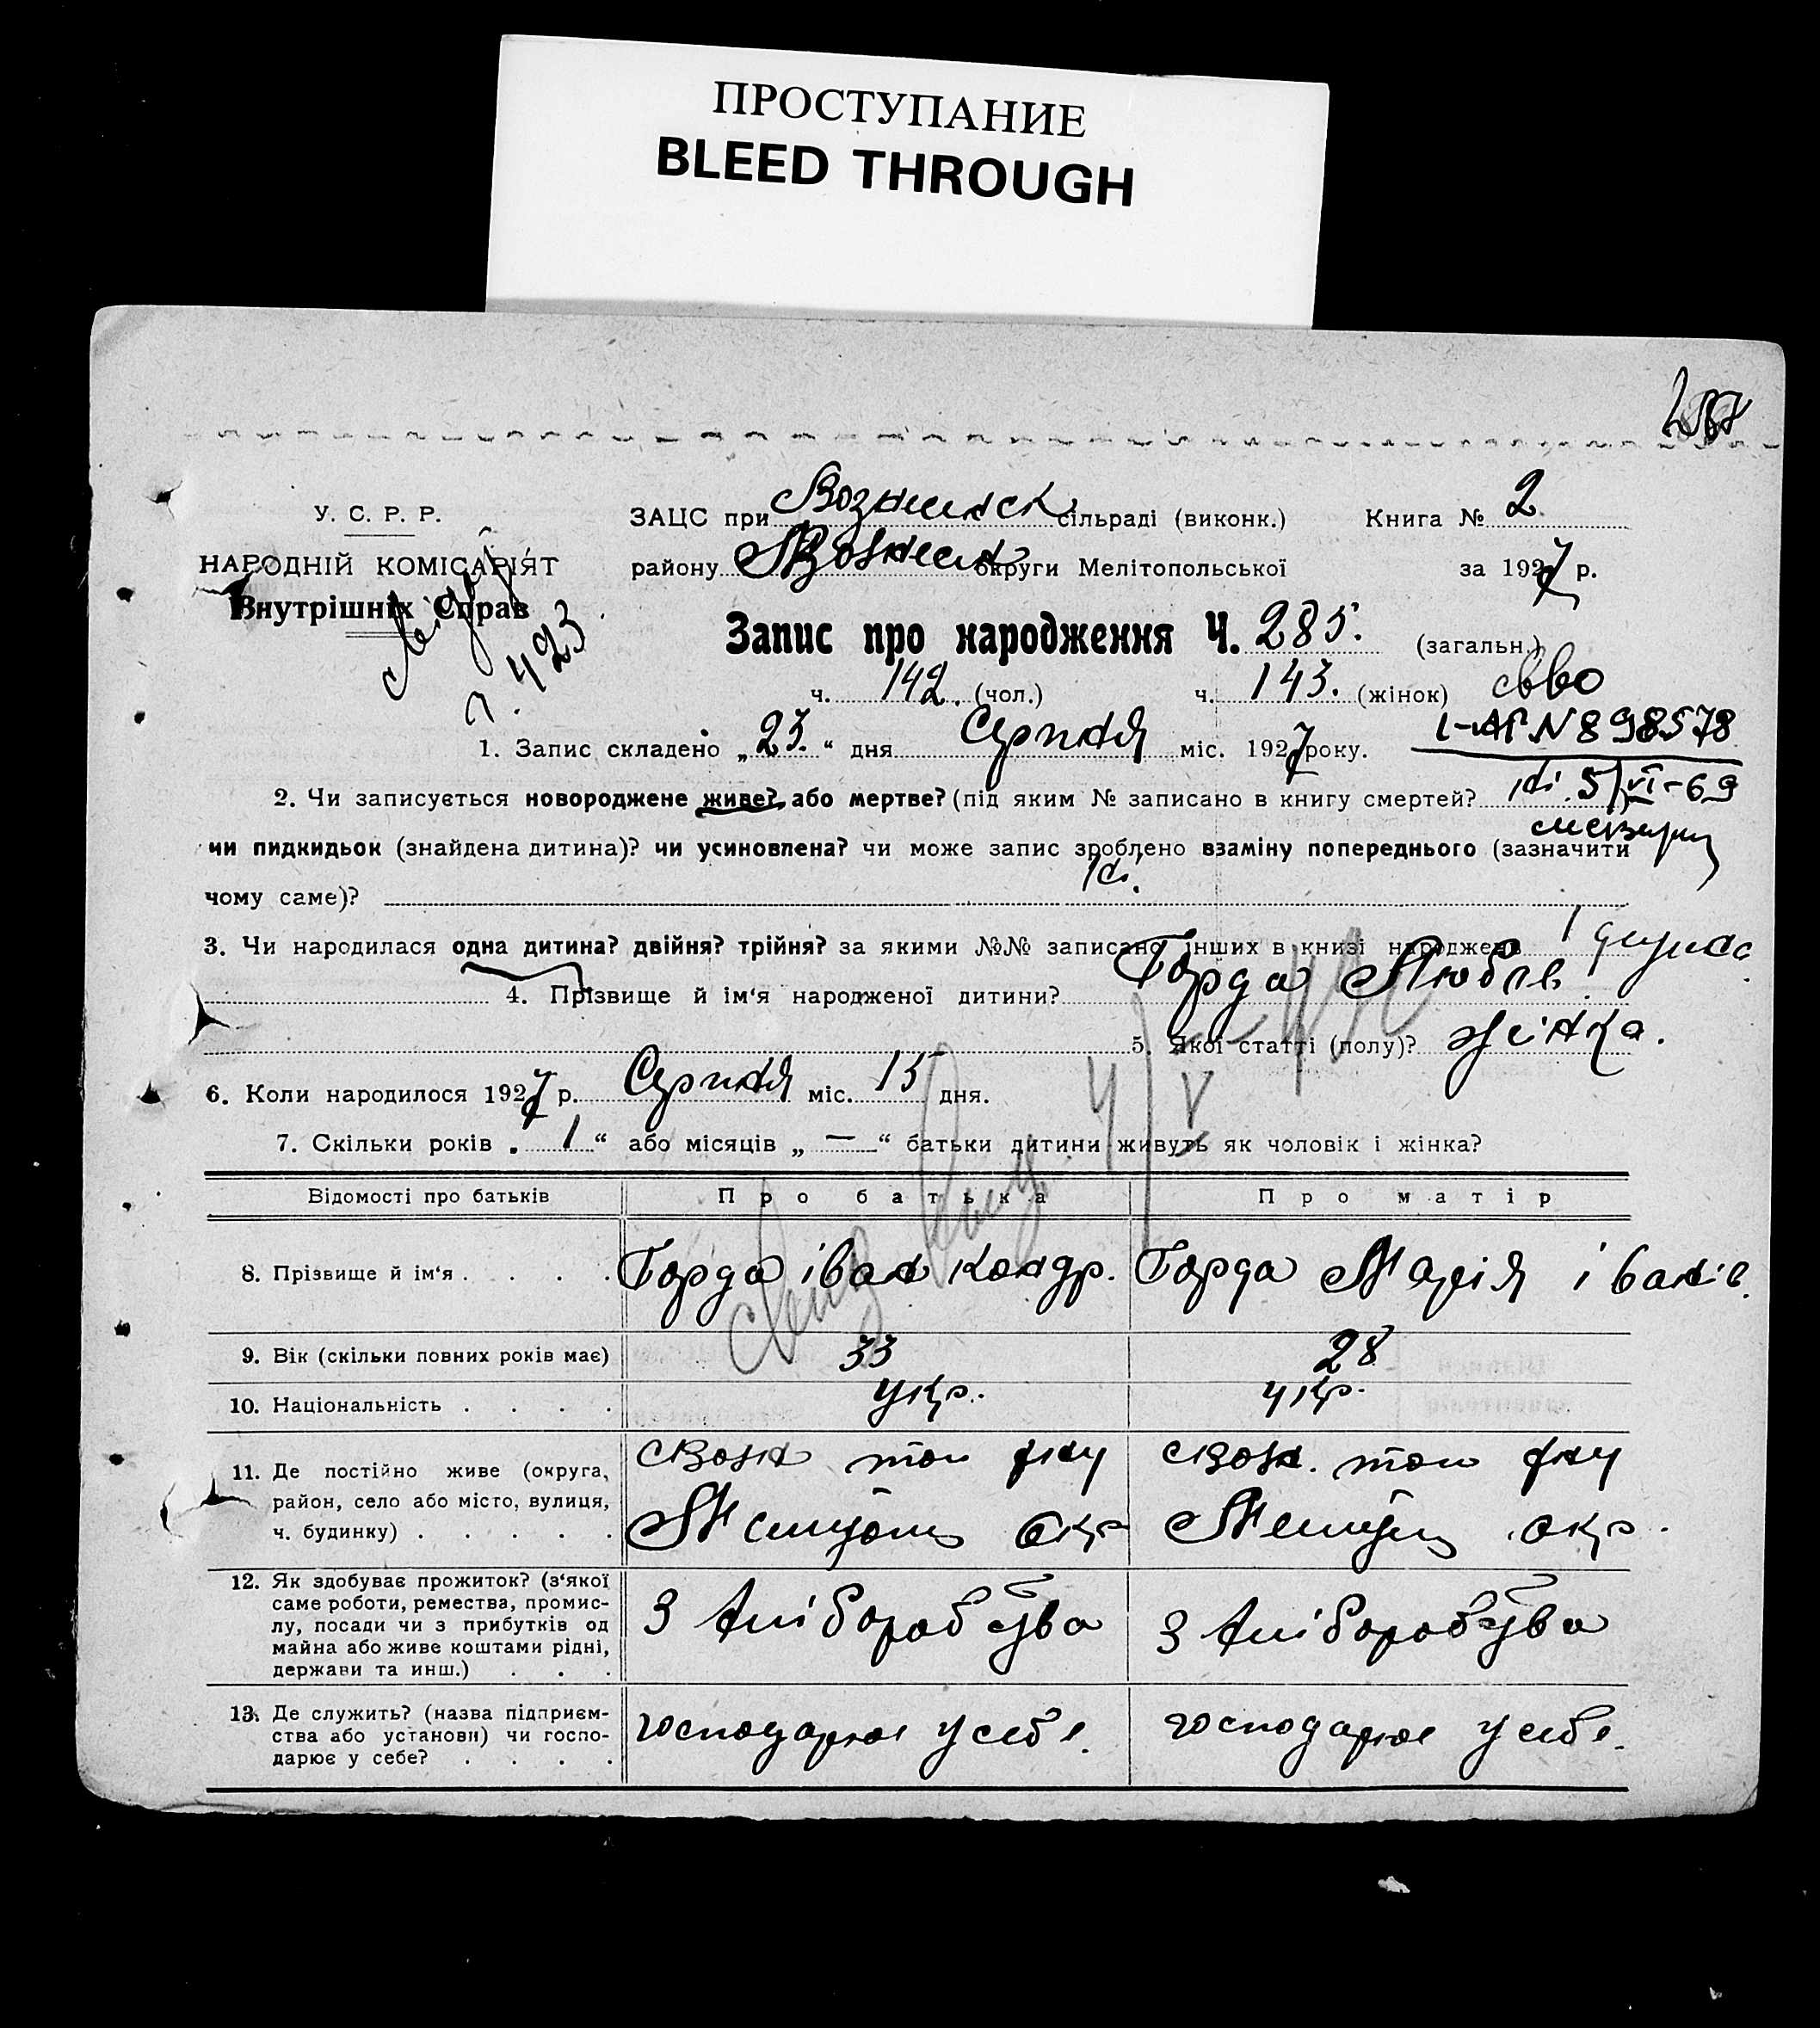 ПРОСТУПАНИЕ
BLEED THROUGH
У. С. Р. Р.
НАРОДНІЙ КОМІСАРІЯТ
Внутрішніх Справ
ч. 423
ЗАЦС при Вознисск сільраді (виконк.) Книга № 2
району округи Мелітопольської за 1927 р.
Запис про народження Ч. 285. (загальн.)
ч. 142. (чол.) ч. 143. (жінок)
N 898578
1. Запис складено „23.“ дня Серпня міс. 1927 року.
2. Чи записується новороджене живе? або мертве? (під яким № записано в книгу смертей?
5/VI-69
чи пидкидьок (знайдена дитина)? чи усиновлена? чи може запис зроблено взаміну попереднього (зазначити
чому саме)? Ні.
3. Чи народилася одна дитина? двійня? трійня? за якими №№ записано інших в книзі народжень 1
4. Прізвище й ім'я народженої дитини? Горда Любов.
5. Якої статті (полу)? жінка.
6. Коли народилося 1927 р. Серпня міс. 15 дня.
7. Скільки років „1“ або місяців „—“ батьки дитини живуть як чоловік і жінка?
Відомості про батьків Про батька Про матір
8. Прізвище й ім'я . . . . Горда іван кондр. Горда Марія іванів.
9. Вік (скільки повних років має) 33 28
10. Національність . . . . укр. укр.
11. Де постійно живе (округа,
район, село або місто, вулиця,
ч. будинку) . . . . .
окр окр.
12. Як здобуває прожиток? (з'якої
саме роботи, ремества, промис-
лу, посади чи з прибутків од
майна або живе коштами рідні,
держави та инш.) . . .
З хліборобства З хліборобства
13. Де служить? (назва підприєм-
ства або установи) чи госпо-
дарює у себе? . . . .
господарює у себе. господарює у себе.